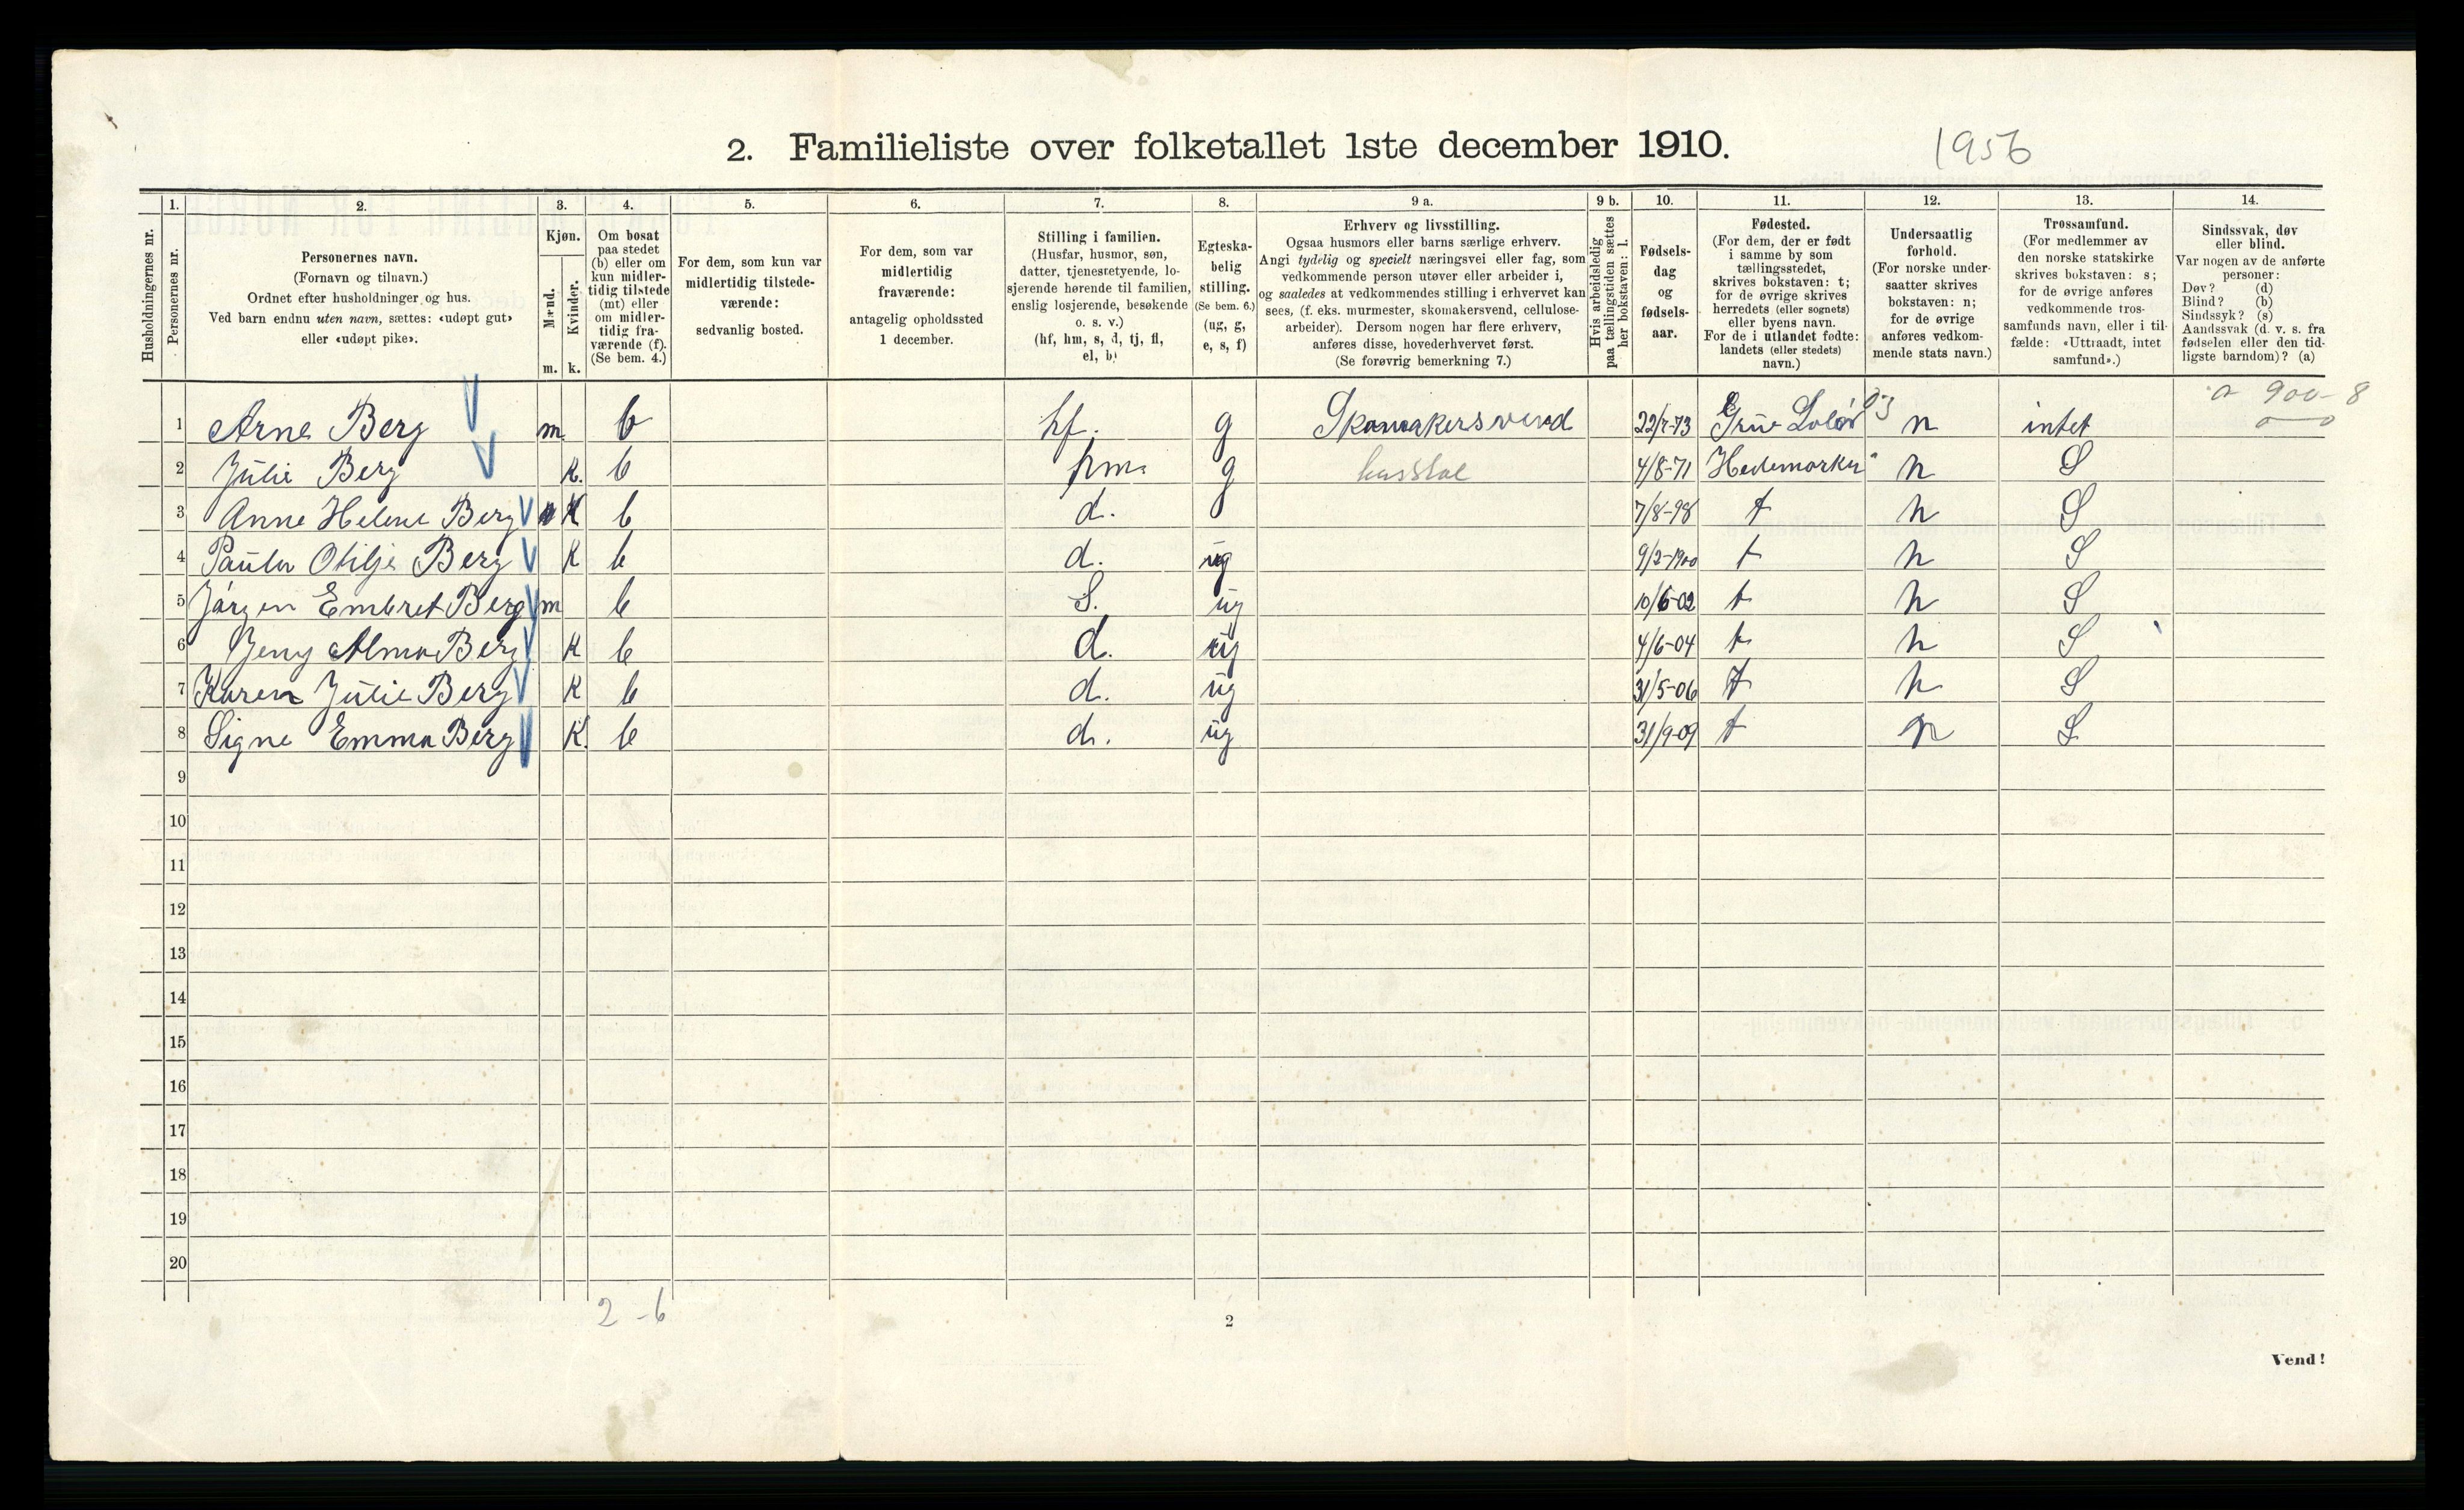 2. Familieliste over folketallet 1ste december 1910.
1956
1. 2. 3. 4. 5. 6. 7. 8. 9 a. 9 b. 10. 11. 12. 13. 14.
Husholdningernes nr.
Personernes nr.
Personernes navn.
(Fornavn og tilnavn.)
Ordnet efter husholdninger og hus.
Ved barn endnu uten navn, sættes: «udøpt gut»
eller «udøpt pike».
Kjøn.
Mænd.
Kvinder.
m. k.
Om bosat
paa stedet
(b) eller om
kun midler-
tidig tilstede
(mt) eller
om midler-
tidig fra-
værende (f).
(Se bem. 4.)
For dem, som kun var
midlertidig tilstede-
værende:
sedvanlig bosted.
For dem, som var
midlertidig
fraværende:
antagelig opholdssted
1 december.
Stilling i familien.
(Husfar, husmor, søn,
datter, tjenestetyende, lo-
sjerende hørende til familien,
enslig losjerende, besøkende
o. s. v.)
(hf, hm, s, d, tj, fl,
el, b)
Egteska-
belig
stilling.
(Se bem. 6.)
(ug, g,
e, s, f)
Erhverv og livsstilling.
Ogsaa husmors eller barns særlige erhverv.
Angi tydelig og specielt næringsvei eller fag, som
vedkommende person utøver eller arbeider i,
og saaledes at vedkommendes stilling i erhvervet kan
sees, (f. eks. murmester, skomakersvend, cellulose-
arbeider). Dersom nogen har flere erhverv,
anføres disse, hovederhvervet først.
(Se forøvrig bemerkning 7.)
Hvis arbeidsledig
paa tællingstiden sættes
her bokstaven: l.
Fødsels-
dag
og
fødsels-
aar.
Fødested.
(For dem, der er født
i samme by som
tællingsstedet,
skrives bokstaven: t;
for de øvrige skrives
herredets (eller sognets)
eller byens navn.
For de i utlandet fødte:
landets (eller stedets)
navn.)
Undersaatlig
forhold.
(For norske under-
saatter skrives
bokstaven: n;
for de øvrige
anføres vedkom-
mende stats navn.)
Trossamfund.
(For medlemmer av
den norske statskirke
skrives bokstaven: s;
for de øvrige anføres
vedkommende tros-
samfunds navn, eller i til-
fælde: «Uttraadt, intet
samfund».)
Sindssvak, døv
eller blind.
Var nogen av de anførte
personer:
Døv? (d)
Blind? (b)
Sindssyk? (s)
Aandssvak (d. v. s. fra
fødselen eller den tid-
ligste barndom)? (a)
900-8
1 Arne Berg m b hf. g Skomakersvend 22/7-73 Grue Solør 03 n intet
2 Julie Berg k. b hm. g husstel 4/8-71 Hedemarken n S
3 Anne Helene Berg K b d. 7/8-98 t n S
4 Paula Otilje Berg K b d. ug 9/2-1900 t n S
5 Jørgen Embret Berg m b S. ug 10/6-02 t n S
6 Jeny Alma Berg K b d. ug 4/6-04 t n S
7 Karen Julie Berg K b d. ug 31/5-06 t n S
8 Signe Emma Berg K. b d. ug 31/9-09 t n S
9
10
11
12
13
14
15
16
17
18
19
20
2 - 6
2
Vend!